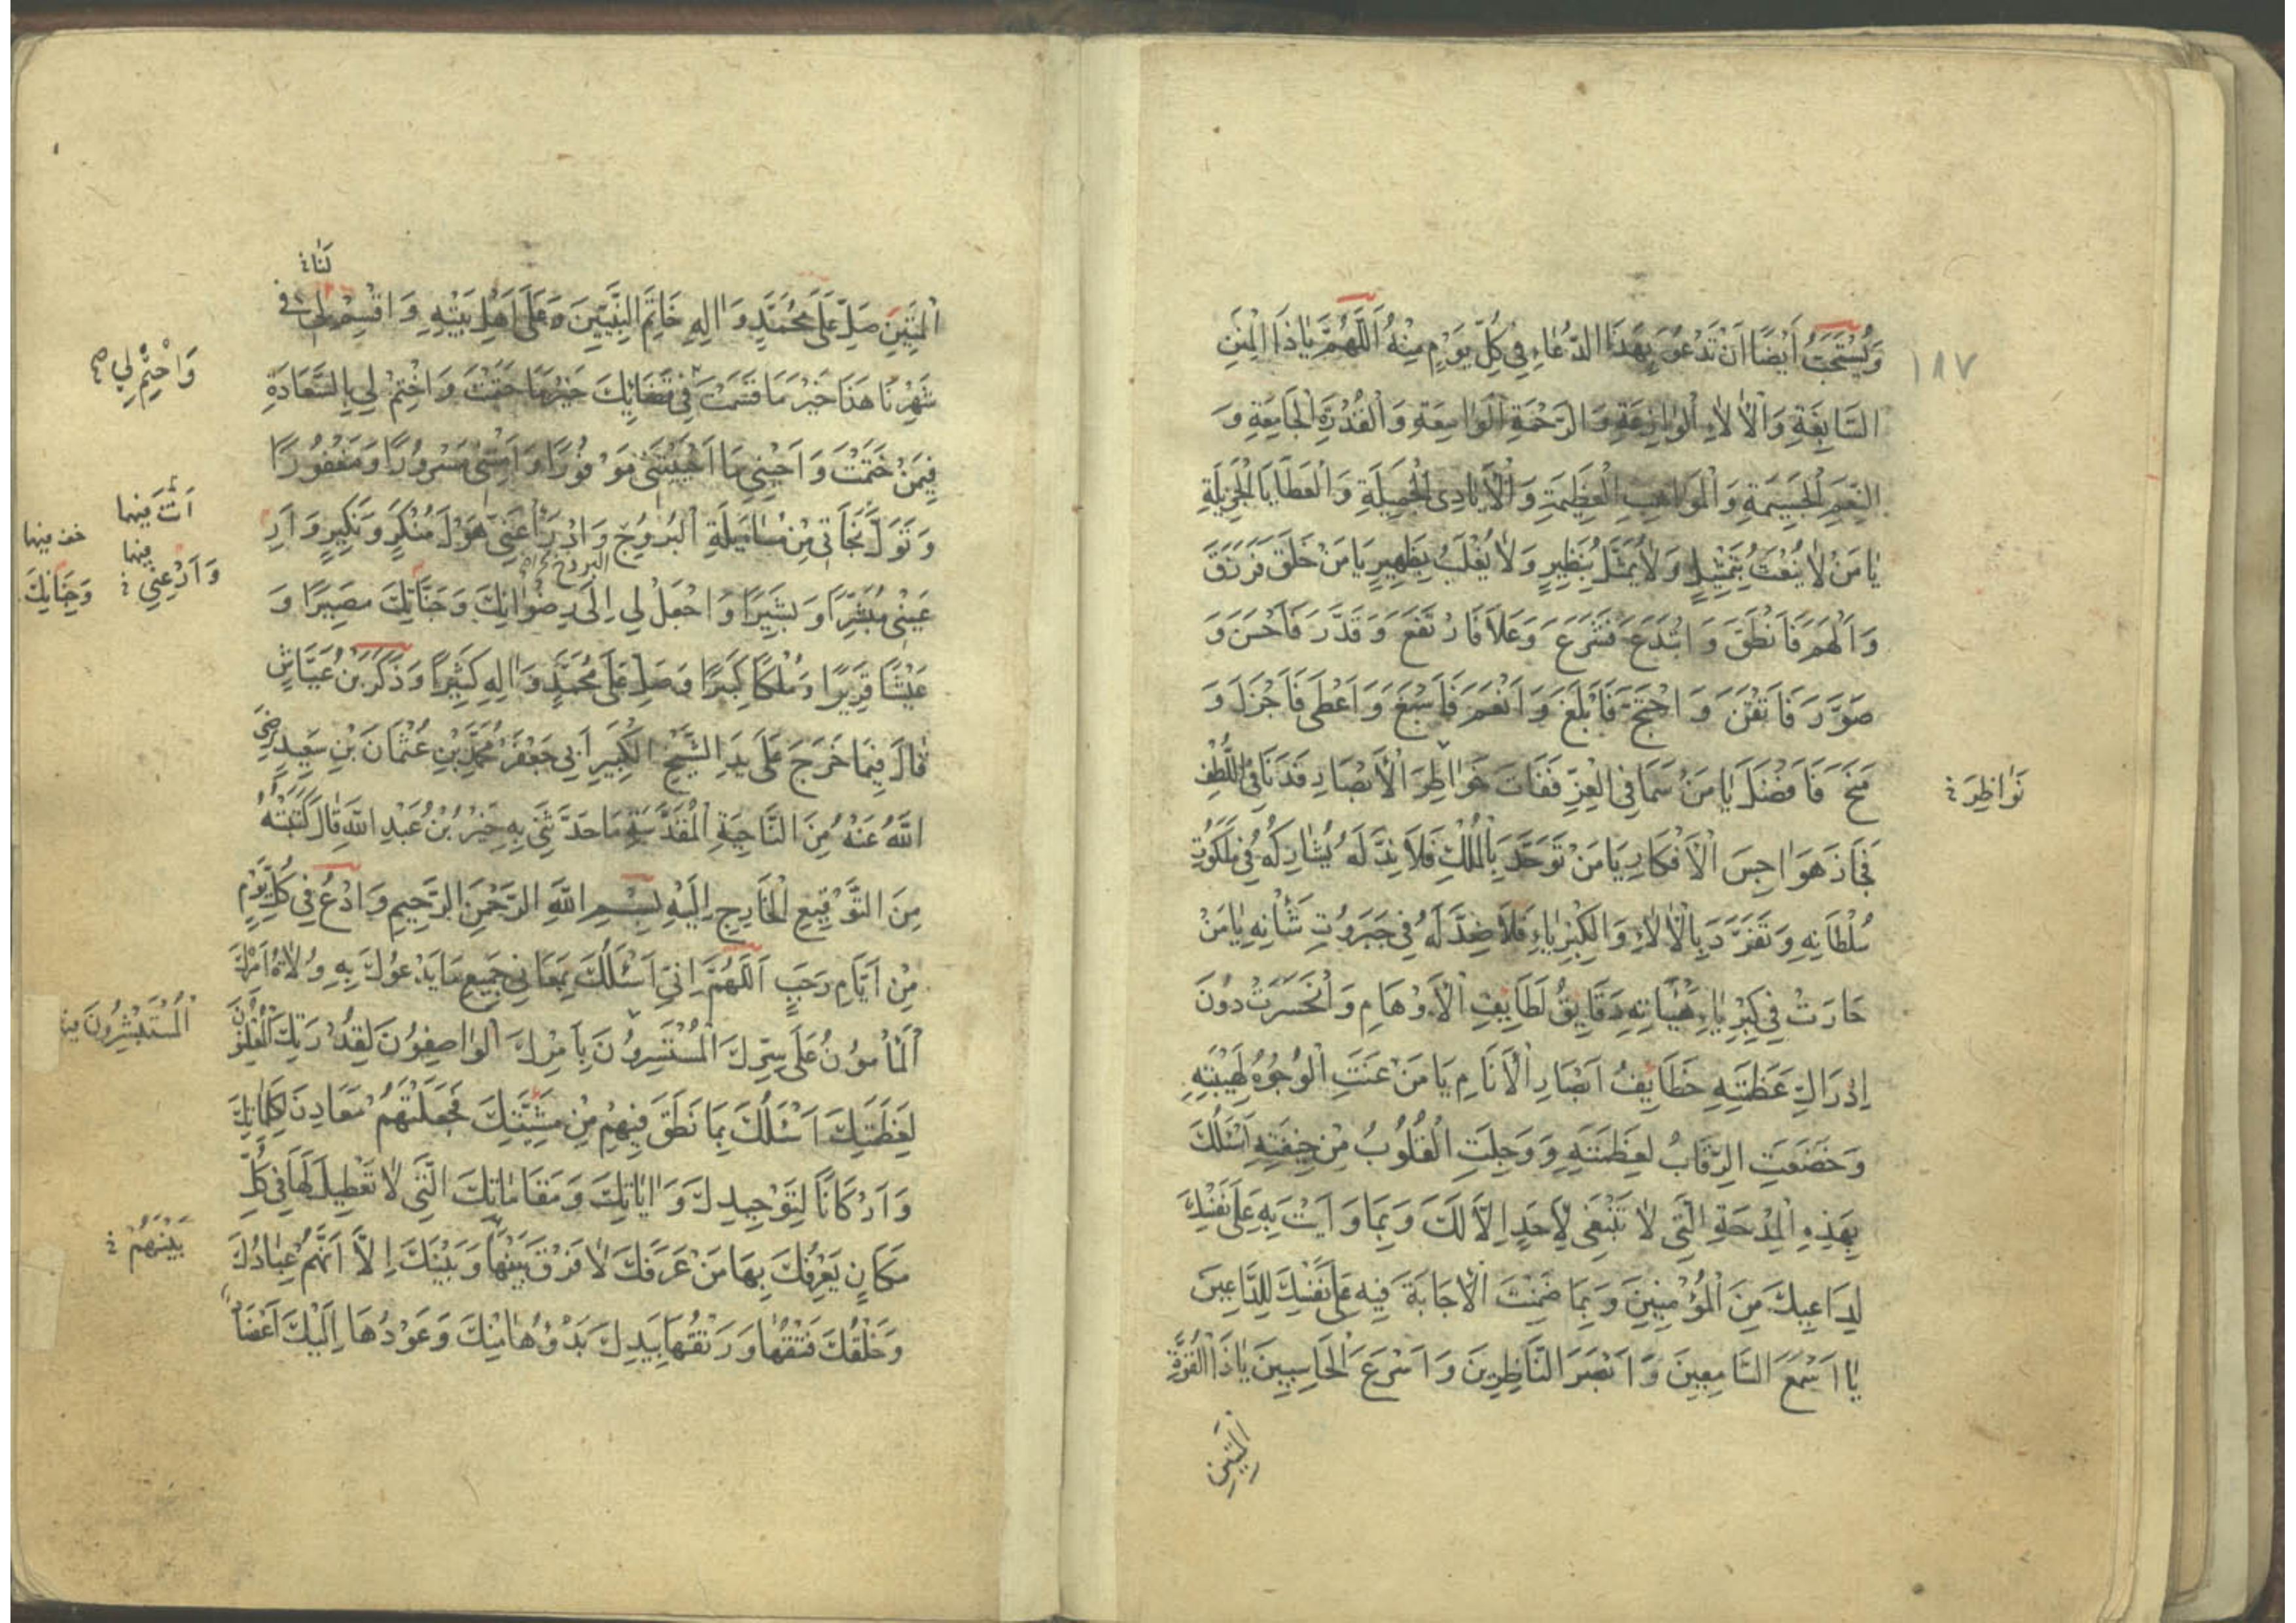 وَيُسْتَحَبُّ أَيْضًا اَنْ تَدْعُوَ بِهَذَا الدُّعَاءِ فِي كُلِّ يَوْمٍ مِنْهُ اَللّٰهُمَّ يَا ذَا الْمِنَنِ
١٨٧
السَّابِغَةِ وَالْاٰلَاءِ الْوَازِعَةِ وَالرَّحْمَةِ الْوَاسِعَةِ وَالْقُدْرَةِ الْجَامِعَةِ وَ
النِّعَمِ الْجَسِيمَةِ وَالْمَوَاهِبِ الْعَظِيمَةِ وَالْاَيَادِى الْجَمِيلَةِ وَالْعَطَايَا الْجَزِيلَةِ
يَا مَنْ لَا يُنْعَتُ بِتَمْثِيلٍ وَلَا يُمَثَّلُ بِنَظِيرٍ وَلَا يُغْلَبُ بِظَهِيرٍ يَا مَنْ خَلَقَ فَرَزَقَ
وَاَلْهَمَ فَاَنْطَقَ وَابْتَدَعَ فَشَرَعَ وَعَلَا فَارْتَفَعَ وَقَدَّرَ فَاَحْسَنَ وَ
صَوَّرَ فَاَتْقَنَ وَاحْتَجَّ فَاَبْلَغَ وَاَنْعَمَ فَاَسْبَغَ وَاَعْطَى فَاَجْزَلَ وَ
مَنَحَ فَاَفْضَلَ يَا مَنْ سَمَا فِي الْعِزِّ فَفَاتَ خَوَاطِرَ الْاَبْصَارِ وَدَنَا فِي اللُّطْفِ
نَوَاظِرَ خ
فَجَازَ هَوَاجِسَ الْاَفْكَارِ يَا مَنْ تَوَحَّدَ بِالْمُلْكِ فَلَا نِدَّ لَهُ يُشَارِكُهُ فِي مَلَكُوتِ
سُلْطَانِهِ وَتَفَرَّدَ بِالْاٰلَاءِ وَالْكِبْرِيَاءِ فَلَا ضِدَّ لَهُ فِي جَبَرُوتِ شَأْنِهِ يَا مَنْ
حَارَتْ فِي كِبْرِيَاءِ هَيْبَاتِهِ دَقَايِقُ لَطَايِفِ الْاَوْهَامِ وَانْحَسَرَتْ دُونَ
اِدْرَاكِ عَظَمَتِهِ خَطَايِفُ اَبْصَارِ الْاَنَامِ يَا مَنْ عَنَتِ الْوُجُوهُ لِهَيْبَتِهِ
وَخَضَعَتِ الرِّقَابُ لِعَظَمَتِهِ وَوَجِلَتِ الْقُلُوبُ مِنْ خِيفَتِهِ اَسْئَلُكَ
بِهَذِهِ الْمِدْحَةِ الَّتِي لَا تَنْبَغِي لِاَحَدٍ اِلَّا لَكَ وَبِمَا وَاَيْتَ بِهِ عَلَى نَفْسِكَ
لِدَاعِيكَ مِنَ الْمُؤْمِنِينَ وَبِمَا ضَمِنْتَ الْاِجَابَةَ فِيهِ عَلَى نَفْسِكَ لِلدَّاعِينَ
يَا اَسْمَعَ السَّامِعِينَ وَاَبْصَرَ النَّاظِرِينَ وَاَسْرَعَ الْحَاسِبِينَ يَا ذَا الْقُوَّةِ
الْمَتِينِ
لَنَا خ
الْمَتِينِ صَلِّ عَلَى مُحَمَّدٍ وَاٰلِهِ خَاتَمِ النَّبِيِّينَ وَعَلَى اَهْلِ بَيْتِهِ وَاقْسِمْ لِي فِي
شَهْرِنَا هَذَا خَيْرَ مَا قَسَمْتَ فِي قَضَائِكَ خَيْرَ مَا حَتَمْتَ وَاخْتِمْ لِي بِالسَّعَادَةِ
وَاحْتِمْ لِي
فِيمَنْ خَتَمْتَ وَاَحْيِنِي مَا اَحْيَيْتَنِي مَوْفُورًا وَاَمِتْنِي مَسْرُورًا وَمَغْفُورًا
وَتَوَلَّ نَجَاتِي مِنْ مُسَايَلَةِ الْبُرْزُخِ وَادْرَأْ عَنِّي هَوْلَ مُنْكَرٍ وَنَكِيرٍ وَاَرِ
البرزخ
وَجِنَانِكَ
عَيْنِي مُبَشِّرًا وَبَشِيرًا وَاجْعَلْ لِي اِلَى رِضْوَانِكَ وَجَنَّاتِكَ مَصِيرًا وَ
عَيْشًا قَرِيرًا وَمُلْكًا كَبِيرًا وَصَلِّ عَلَى مُحَمَّدٍ وَاٰلِهِ كَثِيرًا وَذَكَرَ بْنُ عَيَّاشٍ
قَالَ فِيمَا خَرَجَ عَلَى يَدِ الشَّيْخِ الْكَبِيرِ اَبِي جَعْفَرٍ مُحَمَّدِ بْنِ عُثْمَانَ بْنِ سَعِيدٍ رَضِيَ
اللَّهُ عَنْهُ مِنَ النَّاحِيَةِ الْمُقَدَّسَةِ مَا حَدَّثَنِي بِهِ خَيْرُ بْنُ عَبْدِ اللَّهِ قَالَ كَتَبْتُهُ
مِنَ التَّوْقِيعِ الْخَارِجِ اِلَيْهِ بِسْمِ اللَّهِ الرَّحْمَنِ الرَّحِيمِ وَادْعُ فِي كُلِّ يَوْمٍ
مِنْ اَيَّامِ رَجَبٍ اَللّٰهُمَّ اِنِّي اَسْئَلُكَ بِمَعَانِي جَمِيعِ مَا يَدْعُوكَ بِهِ وُلَاةُ اَمْرِكَ
الْمَأْمُونُ عَلَى سِرِّكَ الْمُسْتَسِرُّونَ بِاَمْرِكَ الْوَاصِفُونَ لِقُدْرَتِكَ الْمُعْلِنُونَ
الْمُسْتَبْشِرُونَ
لِعَظَمَتِكَ اَسْئَلُكَ بِمَا نَطَقَ فِيهِمْ مِنْ مَشِيَّتِكَ فَجَعَلْتَهُمْ مَعَادِنَ لِكَلِمَاتِكَ
وَاَرْكَانًا لِتَوْحِيدِكَ وَاٰيَاتِكَ وَمَقَامَاتِكَ الَّتِي لَا تَعْطِيلَ لَهَا فِي كُلِّ
مَكَانٍ يَعْرِفُكَ بِهَا مَنْ عَرَفَكَ لَا فَرْقَ بَيْنَهَا وَبَيْنَكَ اِلَّا اَنَّهُمْ عِبَادُكَ
بَيْنَهُمْ خ
وَخَلْقُكَ فَتْقُهَا وَرَتْقُهَا بِيَدِكَ بَدْؤُهَا مِنْكَ وَعَوْدُهَا اِلَيْكَ اَعْضَادٌ